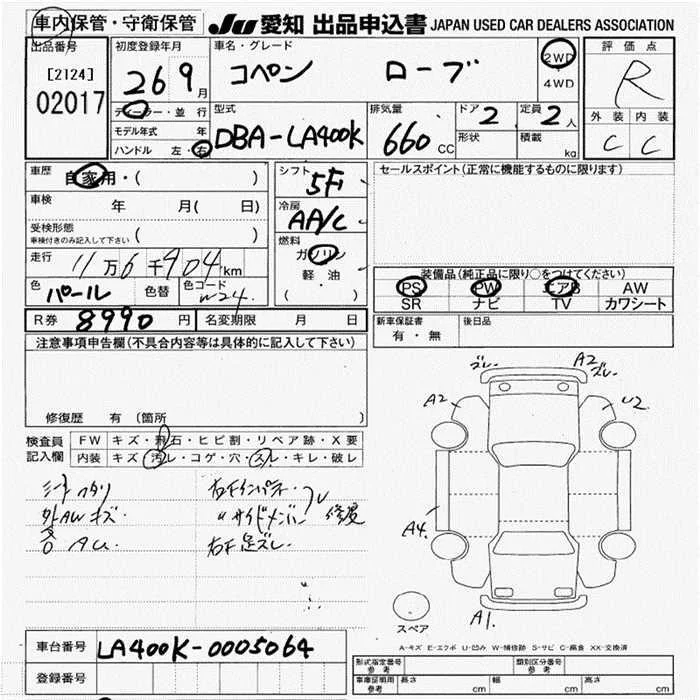 車内保管・守衛保管 JU 愛知 出品申込書 JAPAN USED CAR DEALERS ASSOCIATION
出品番号
[2124]
02017
初度登録年月
26 9月
ディーラー・並 行
モデル年式 年
ハンドル 左・右
車名・グレード
コペン ローブ
2WD
4WD
型式
DBA-LA400K
排気量
660 CC
ドア 2
形状
定員 2 人
積載 kg
評価点
R
外装 内装
C C
車歴
自家用・( )
車検 年 月( 日)
受検形態
車検付きのみ記入して下さい ( )
走行
11万6千904km
色 パール 色替 色コード W24.
R券 8990 円 名変期限 月 日
シフト
5F
冷房
AA/C
燃料
ガソリン
軽・油
( )
セールスポイント(正常に機能するものに限ります)
装備品(純正品に限り○をつけてください)
PS PW エアB AW
SR ナビ TV カワシート
新車保証書
有・無
後日品
注意事項申告欄(不具合内容等は具体的に記入して下さい)
修復歴 有 〔箇所 〕
検査員
記入欄
FW キズ・飛石・ヒビ割・リペア跡・X要
内装 キズ・汚レ・コゲ・穴・スレ・キレ・破レ
シートヘタリ
外AWキズ
各 AU.
右Fインパネ
〃サイドメンバー 修復
右F足ズレ
ズレ
A2
ズレ
A2
U2
A4
A1.
スペア
A-キズ E-エクボ U-凹み W-補修跡 S-サビ C-腐食 XX-交換済
車台番号 LA400K-0005064
登録番号
形式指定番号
参考
類別区分番号
参考
車庫証明用
参考
長さ cm 幅 cm 高さ cm